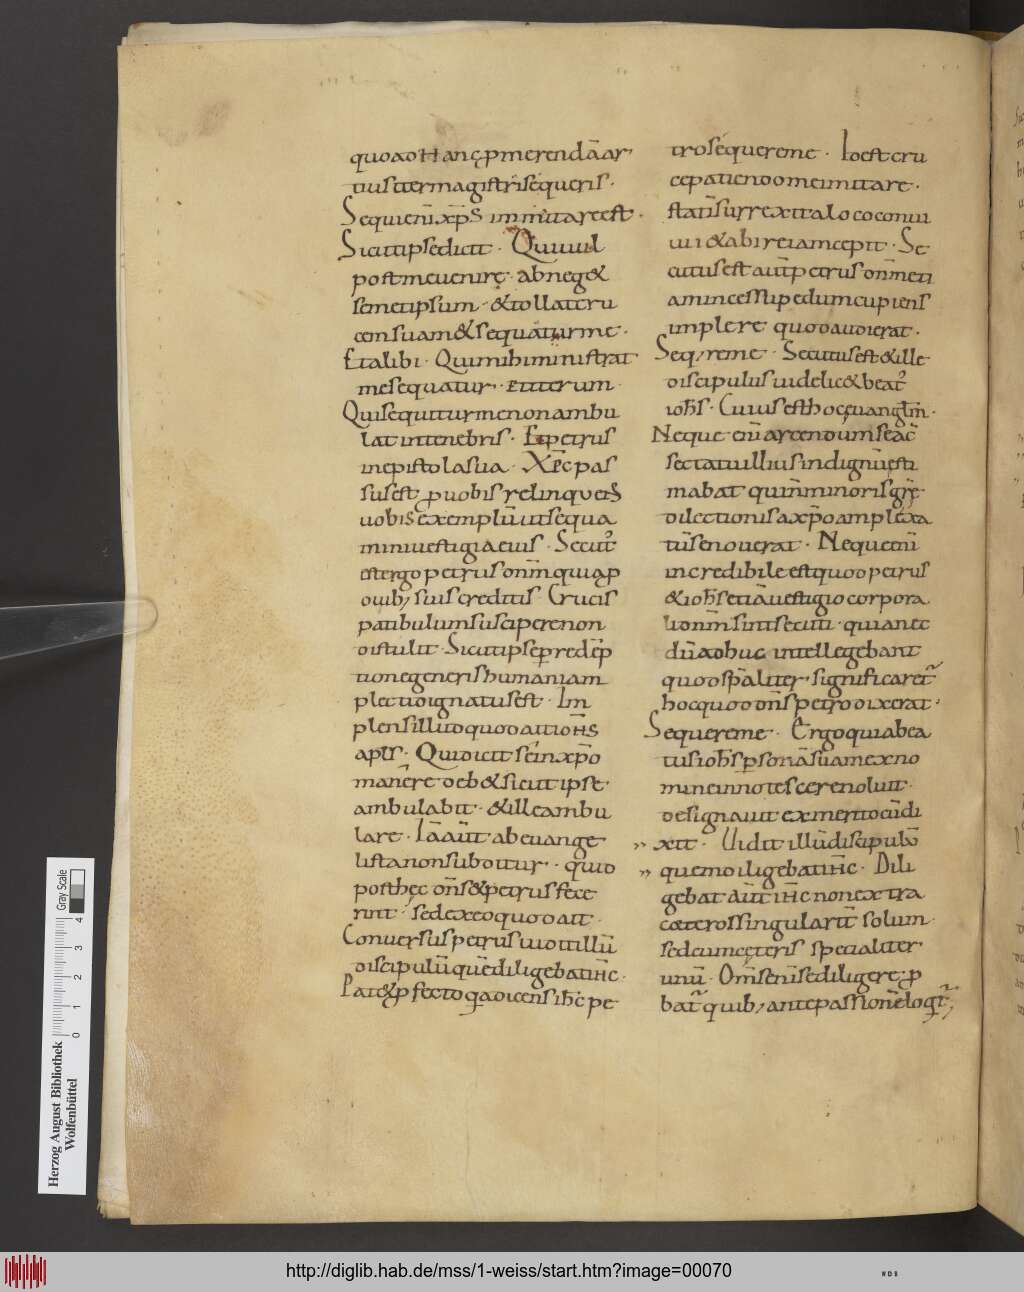 quod ad hanc ꝑmerendā ar
tius iter magistri sequeris ·
Sequi enī xp̄s immitare est ·
Sicut ipse dicit · Qui uul
post me uenire · abneg&
semet ipsum · & tollat cru
cem suam & sequatur me ·
Et alibi · Qui mihi ministrat
me sequatur · et iterum
Qui sequitur me non ambu
lat in tenebris · Et petrus
in epistola sua · Xp̄c pas
sus est ꝓ uobis relinquens
uobis exemplū ut sequa
mini uestigia eius · Secut᾽
est ergo petrus dn̄m quia ꝓ
ouib; suis creditis · Crucis
patibulum suscipere non
distulit · Sicut ipse ꝓ redēp
tione generis humani am
plecti dignatus est · Im
plens illud quod ait iohs
apl̄s · Qui dicit se in xp̄o
manere deb& sicut ipse
ambulabit · & ille ambu
lare · Iā aūt ab euange
lista non subditur · quid
post hec dn̄s & petrus fece
rint · sed ex eo quod ait ·
Conuersus petrus uidit illū
discipulū quē diligebat ih̄c ·
Pat& ꝑfecto qa dicens ih̄c pe
tro sequere me · Id est cru
ce patiendo me imitare ·
statī surrexit a loco conui
uii & abire iam cepit · Se
cutus est aūt petrus dn̄m eti
am incessu pedum cupiens
implere quod audierat ·
Seq;re me · Secutus est & ille
discipulus uidelic& beat᾽
ioh̄s · Cuius est hoc euangl̄m ·
Neque enī arcendum se ac
sectatu illius indignū esti
mabat qui n̄ minoris gr̄e
dilectionis a xp̄o amplexa
tū se nouerat · Neque enī
incredibile est quod petrus
& ioh̄s etiā uestigio corpora
li dn̄m sint secuti · quia nec
dū adhuc intellegebant
quod sp̄aliter significaret
hoc quod dn̄s petro dixerat ·
Sequere me · Ergo quia bea
tus ioh̄s ꝑsonā suam ex no
mine innotescere noluit ·
designauit ex merito cū di
xit · Uidit illū discipulū
quem diligebat ih̄c · Dili
gebat aūt ih̄c non extra
cæteros singularit̄ solum
sed cum cęteris specialiter
unū · Om̄s enī se diligere ꝓ
bat quib; ante passionē loqt̄ ;
Herzog August Bibliothek
Wolfenbüttel
0 1 2 3 4
Gray Scale
http://diglib.hab.de/mss/1-weiss/start.htm?image=00070